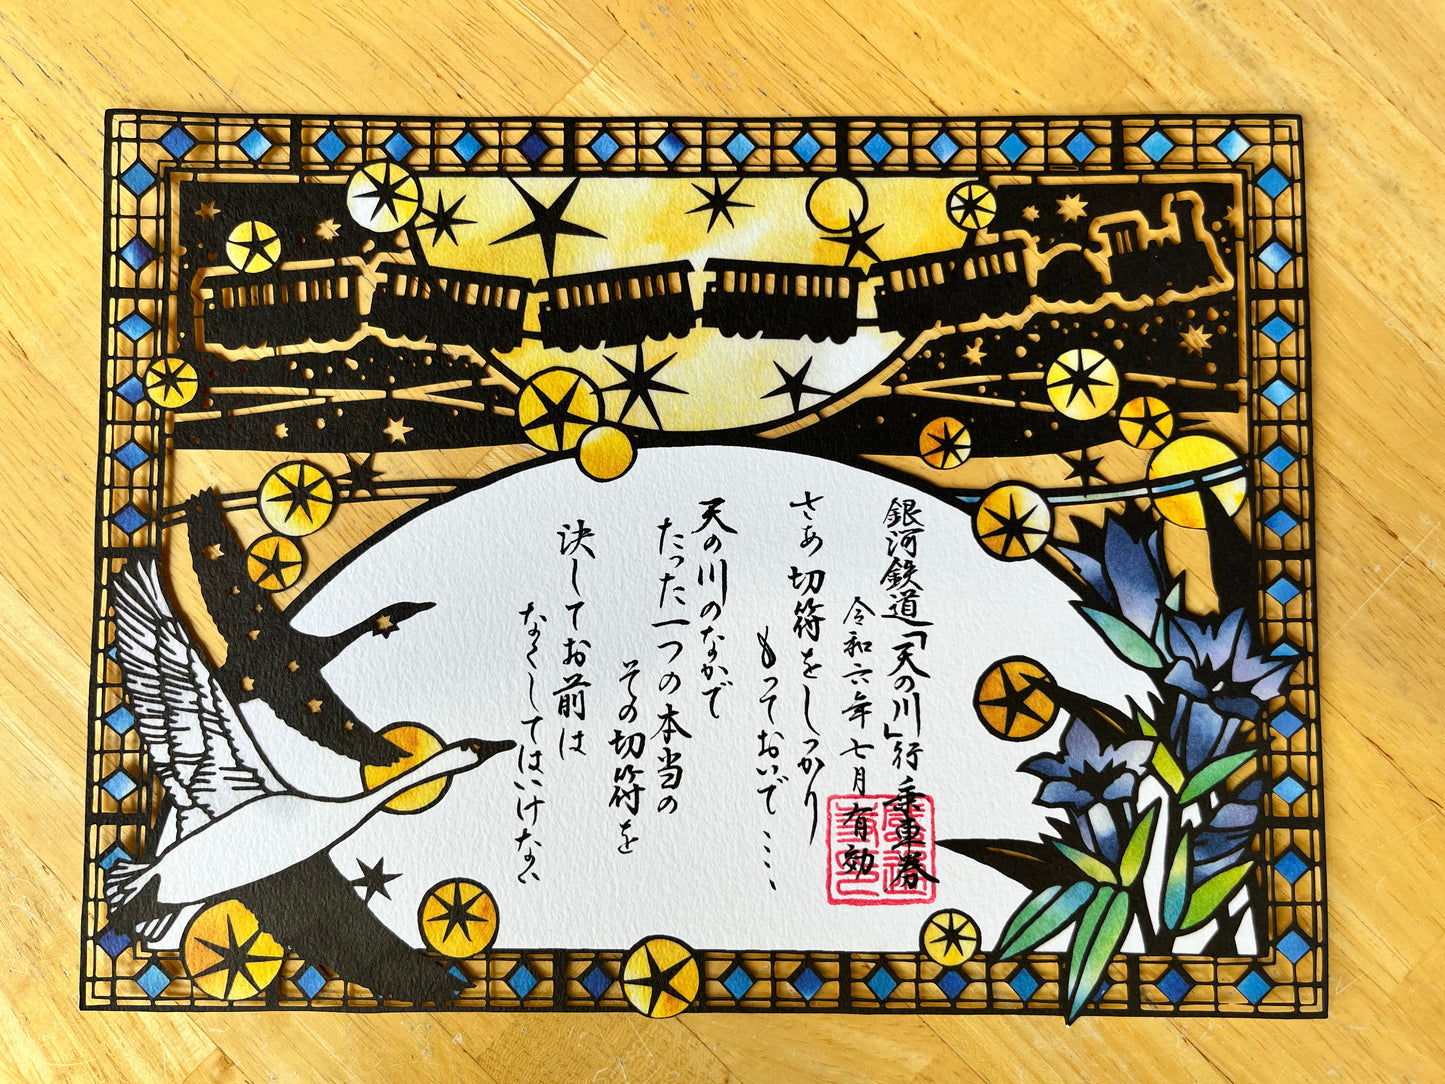 銀河鉄道「天の川」行 乗車券
令和六年七月 有効
さあ 切符をしっかり
もっておいで……
天の川のなかで
たった一つの本当の
その切符を
決してお前は
なくしてはいけない